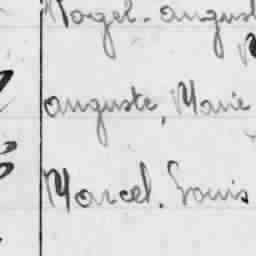 Rogel. august
auguste, Marie
Marcel. Louis